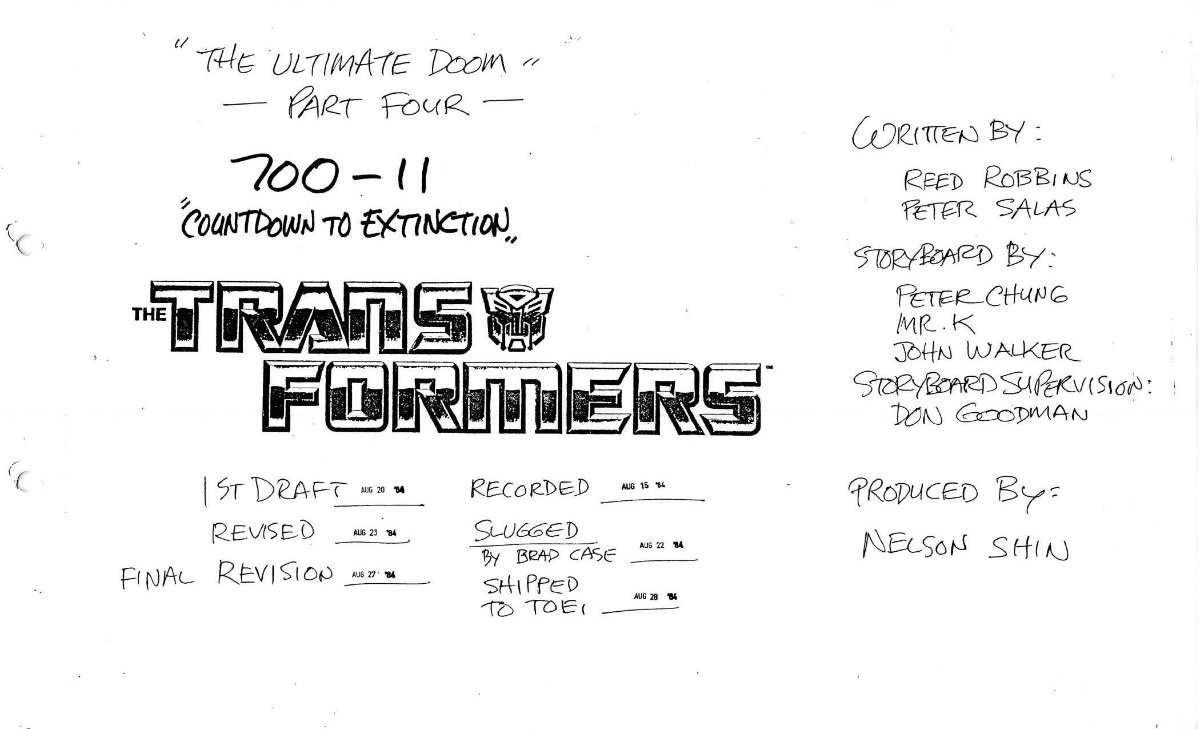 "THE ULTIMATE DOOM"
— PART FOUR —
700-11
"COUNTDOWN TO EXTINCTION"
THE TRANS
FORMERS™
1ST DRAFT AUG 20 '84
REVISED AUG 23 '84
FINAL REVISION AUG 27 '84
RECORDED AUG 15 '84
SLUGGED
BY BRAD CASE AUG 22 '84
SHIPPED
TO TOEI AUG 28 '84
WRITTEN BY:
REED ROBBINS
PETER SALAS
STORYBOARD BY:
PETER CHUNG
MR. K
JOHN WALKER
STORYBOARD SUPERVISION:
DON GOODMAN
PRODUCED BY:
NELSON SHIN